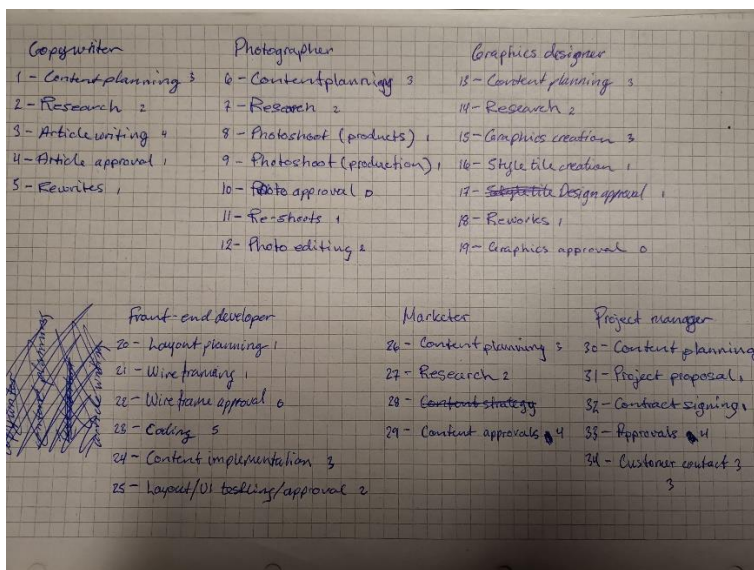 Copywriter
1 - Content planning 3
2 - Research 2
3 - Article writing 4
4 - Article approval 1
5 - Rewrites 1
Photographer
6 - Content planning 3
7 - Research 2
8 - Photoshoot (products) 1
9 - Photoshoot (production) 1
10 - Photo approval 0
11 - Re-shoots 1
12 - Photo editing 2
Graphics designer
13 - Content planning 3
14 - Research 2
15 - Graphics creation 3
16 - Style tile creation 1
17 - Design approval 1
18 - Reworks 1
19 - Graphics approval 0
Front-end developer
20 - Layout planning 1
21 - Wireframing 1
22 - Wireframe approval 0
23 - Coding 5
24 - Content implementation 3
25 - Layout/UI testing/approval 2
Marketer
26 - Content planning 3
27 - Research 2
28 - Content strategy
29 - Content approvals 4
Project manager
30 - Content planning
31 - Project proposal 1
32 - Contract signing 1
33 - Approvals 4
34 - Customer contact 3
3